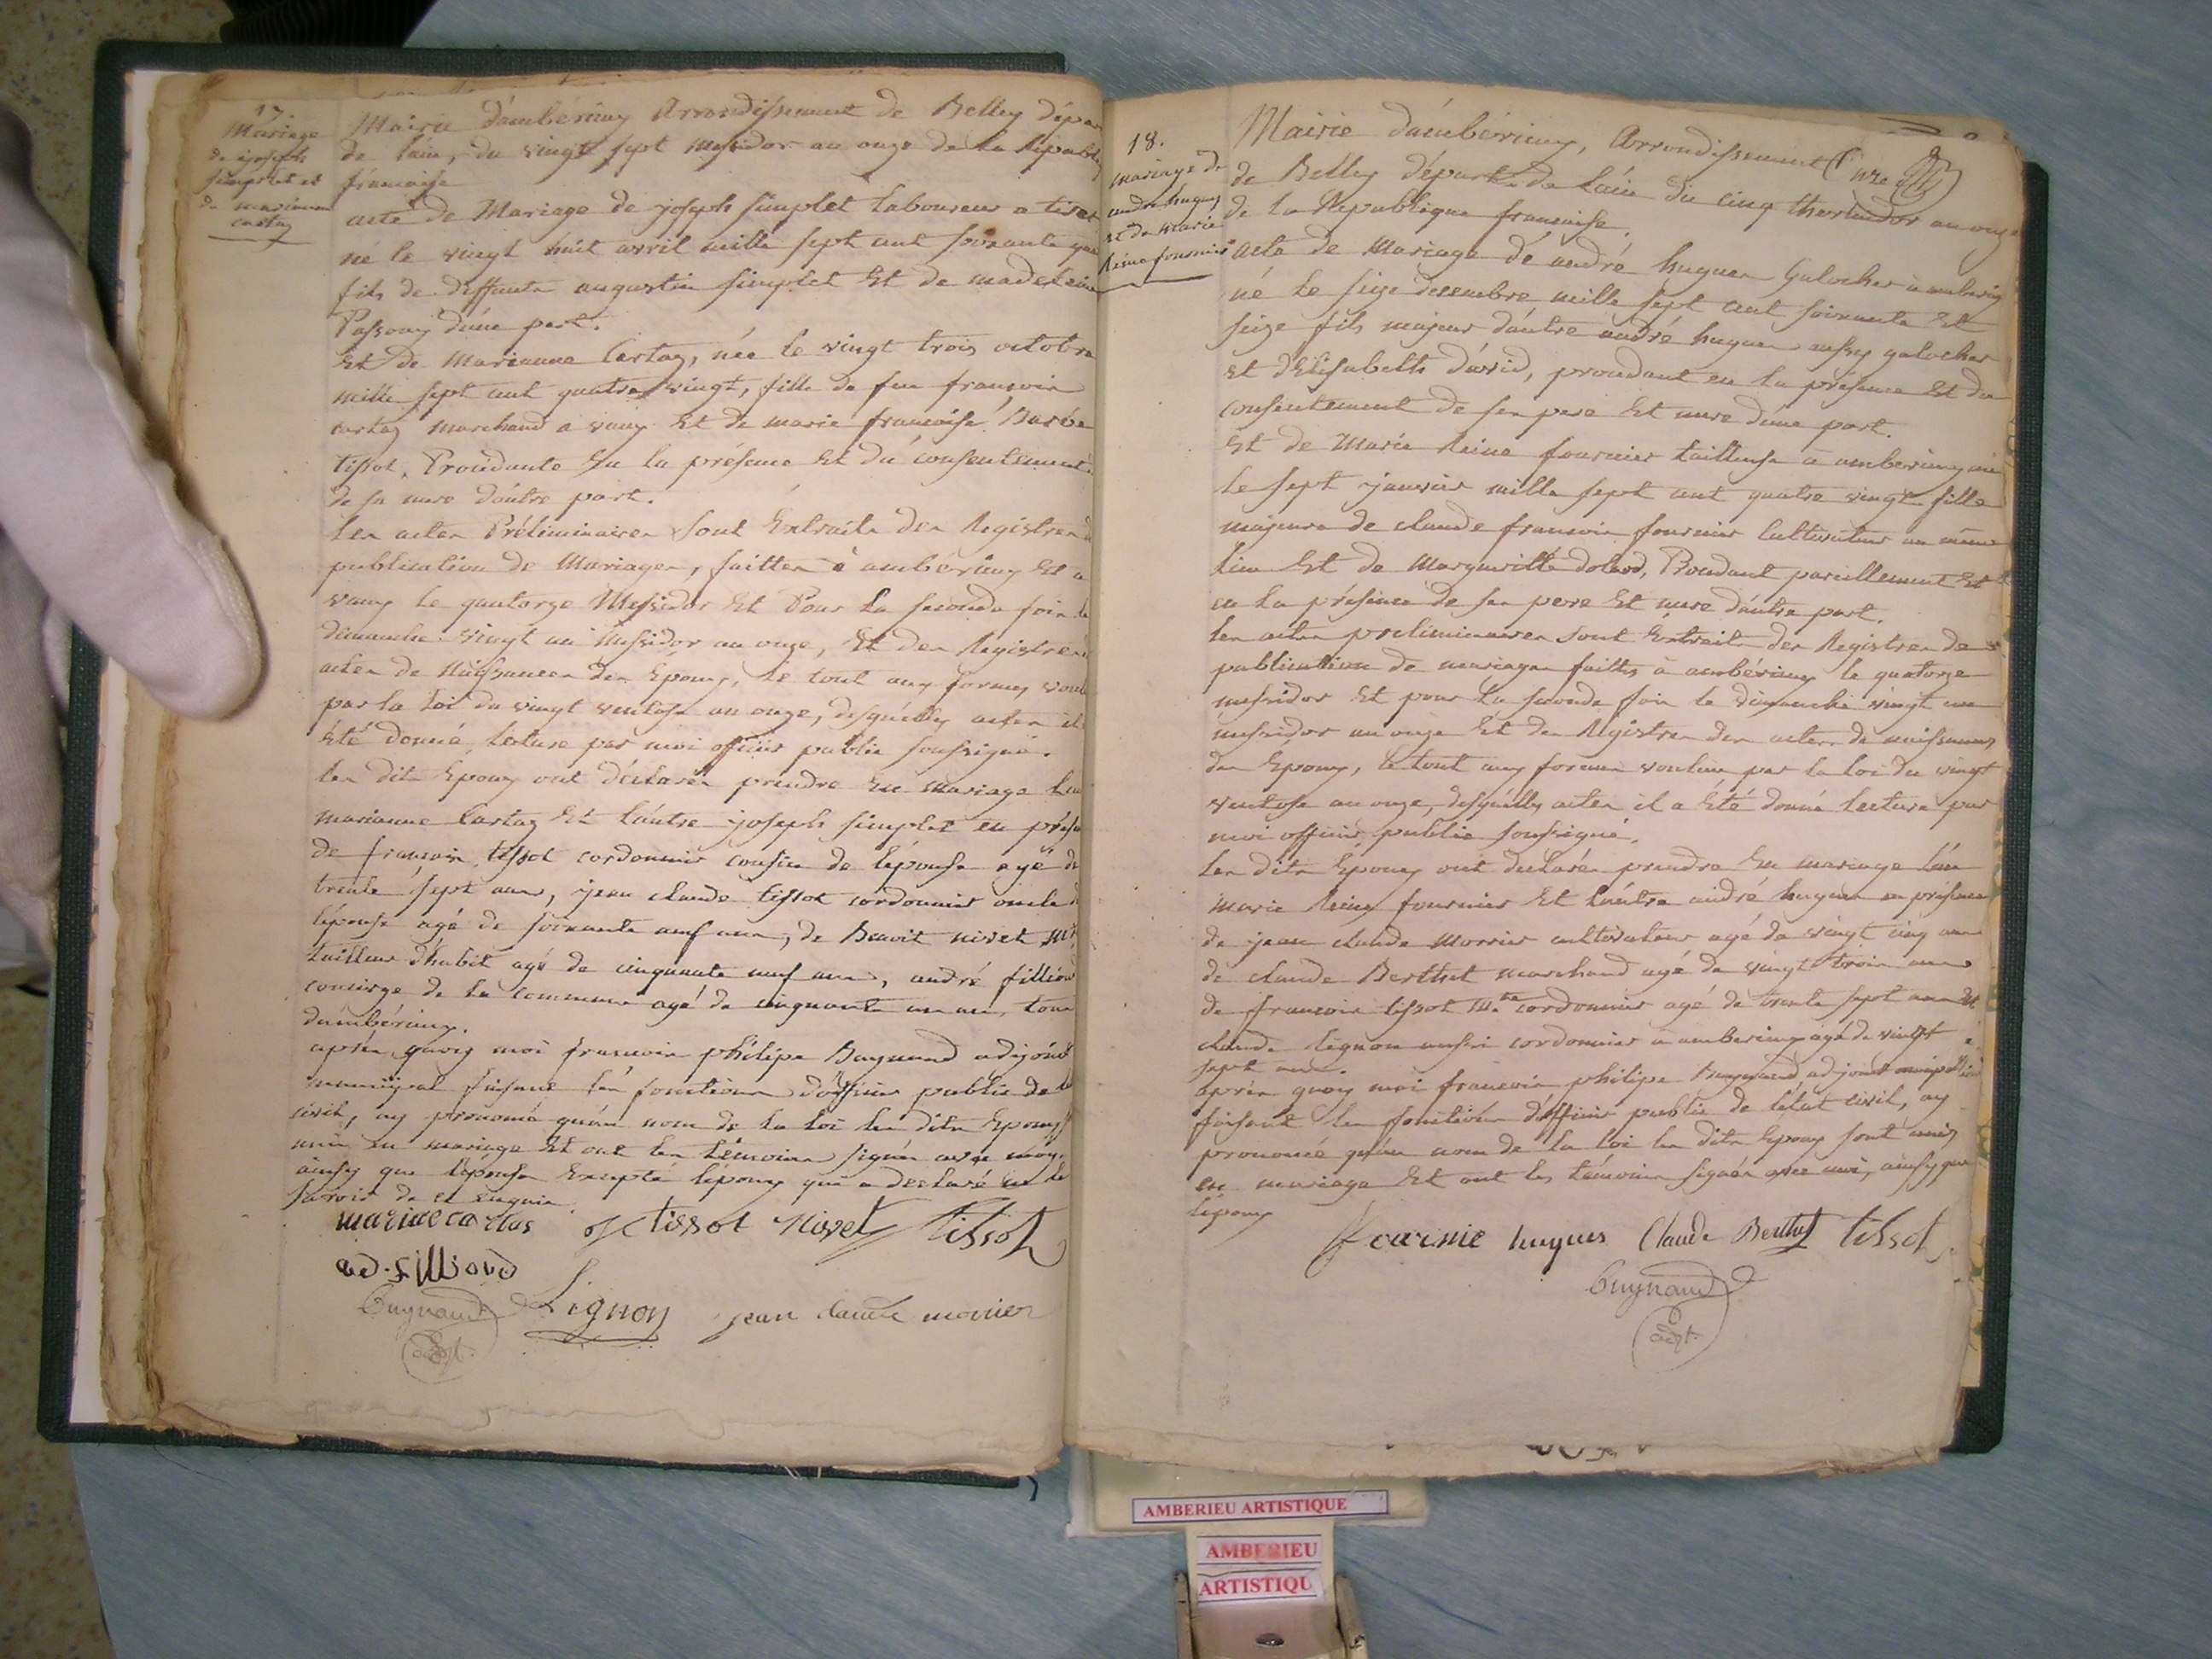 17.
Mariage
de joseph
simplet et
de marianne
cartaz
Mairie d'ambérieuy Arrondissement de Belley dépar
de l'ain, du vingt sept messidor an onze de la Républ
francaise
acte de Mariage de joseph simplet laboureur a
né le vingt huit avril mille sept cent soixante
fils de deffunts augustin simplet Et de madeleine
d'une part.
Et de Marianne Cartaz, née le vingt trois octobre
mille sept cent quatre vingt, fille de feu francois
cartaz marchand a Et de marie francoise Barbe
tissot, Procédante En la présence Et du consentement
de sa mere d'autre part.
les actes Préliminaires sont Extraits des Registres d
publication de Mariages, faittes à ambérieuy Et a
le quatorze Messidor Et Pour la seconde fois le
dimanche vingt un messidor an onze, Et des Registres
actes de Naissances des Epoux, le tout aux formes voul
par la loi du vingt ventose an onze, desquelly actes il
Eté donné lecture par moi officier public soussigné.
les dits Epoux ont déclarés prendre En mariage l'un
marianne Cartaz Et l'autre joseph simplet en prése
de francois tissot cordonnier cousin de l'épouse agé de
trente sept ans, jean claude tissot cordonnier oncle d
l'épouse agé de soixante neuf ans, de Benoit nivet
tailleur d'habit agé de cinquante neuf ans, andré filliod
concierge de la commune agé de cinquante un an, tous
d'ambérieuy.
après quoy moi francois philipe Buynand adjoint
municipal faisant les fonctions d'officier public de l'é
civil, ay prononcé qu'au nom de la loi les dits Epoux s
unis en mariage Et ont les témoins signés avec moy,
ainsy que l'épouse Excepté l'époux qui a déclaré ne le
savoir de ce enquis.
marianecartas tissot Nivet tissot
ad. filliod
Buynand Lignon jean claude morier
adjt.
18.
mariage de
andré hugues
et de marie
Reine fournier
Mairie d'ambérieuy, Arrondissement
de Belley départ. de l'ain du cinq thermidor an onze
de la République francaise.
acte de Mariage de andré hugues Galocher à ambérieuy
né le seize decembre mille sept cent soixante Et
seize fils majeur d'autre andré hugues aussy galocher
et d'Elisabeth david, procédant en la présence Et du
consentement de ses pere Et mere d'une part.
Et de Marie Reine fournier tailleuse à amberieuy née
le sept janvier mille sept cent quatre vingt fille
majeure de claude francois fournier cultivateur au même
lieu Et de Margueritte dolard, Procédant pareillement Et
en la présence de ses pere Et mere d'autre part.
les actes preliminaires sont Extraits des Registres de
publication de mariages faittes à ambérieuy le quatorze
messidor Et pour la seconde fois le dimanche vingt un
messidor an onze Et des Registres des actes de naissances
des Epoux, le tout aux formes voulues par la loi du vingt
ventose an onze, desquelly actes il a Eté donné lecture par
moi officier public soussigné.
les dits Epoux ont declarés prendre En mariage l'un
marie Reine fournier Et l'autre andré hugues en présence
de jean claude Morrier cultivateur agé de vingt cinq ans
de claude Berthet marchand agé de vingt trois ans
de francois tissot Me cordonnier agé de trente sept ans Et
claude Lignon aussi cordonnier à amberieuy agé de vingt
sept ans.
après quoy moi francois philipe Buynand adjoint municipal
faisant les fonctions d'officier public de l'état civil, ay
prononcé qu'au nom de la loi les dits Epoux sont unis
en mariage Et ont les témoins signés avec moi, ainsy que
l'époux
fournie hugues Claude Berthet tissot
Buynand
adjt.
AMBERIEU ARTISTIQUE
AMBERIEU
ARTISTIQU